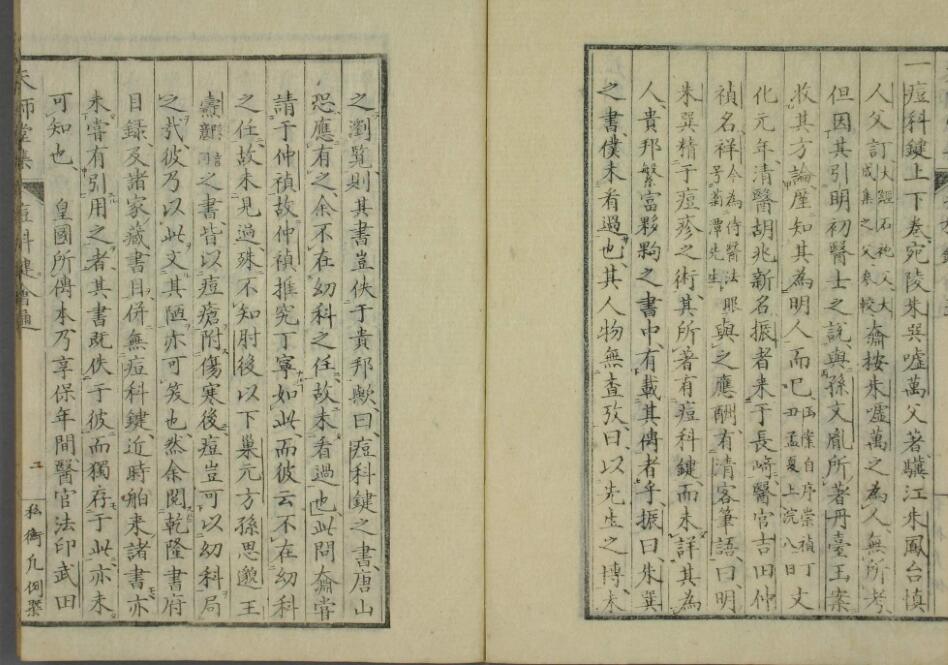 一痘科鍵上下卷、宛陵朱巽嘘萬父著、驥江朱鳳台慎
人父訂、大經石祂父、大成集之父參較、齋按朱嘘萬之為人、無所考
但因其引明初醫士之說、與孫文胤所著丹臺玉案
收其方論、座知其為明人而已、自序崇禎丁丑孟夏上浣八日文
化元年、清醫胡兆新名振者、来于長﨑、醫官吉田仲
禎名祥、今為侍醫法眼號菊潭先生與之應酬、有清客筆語曰、明
朱巽精于痘疹之術、其所著有痘科鍵、而未詳其為
人、貴邦繁富夥夠之書中、有載其傳者乎、振曰、朱巽
之書、僕未看過也、其人物無查攷、曰、以先生之博
之瀏覽則其書豈佚于貴邦歟、曰、痘科鍵之書、唐山
恐應有之、余不在幼科之任、故未看過也、此問齋嘗
請于仲禎、故仲禎推究丁寧如此、而彼云不在幼科
之任、故未見過、殊不知肘後以下、巢元方孫思邈王
燾之書、皆以痘瘡附傷寒後、痘豈可以幼科局
之哉、彼乃以此文其陋、亦可笑也、然余閱乾隆書府
目録、及諸家藏書目、併無痘科鍵、近時舶来諸書、亦
未嘗有引用之者、其書既佚于彼、而獨存于此、亦未
可知也 皇國所傳本、乃享保年間醫官法印武田
天師堂 痘科鍵會通 凡例